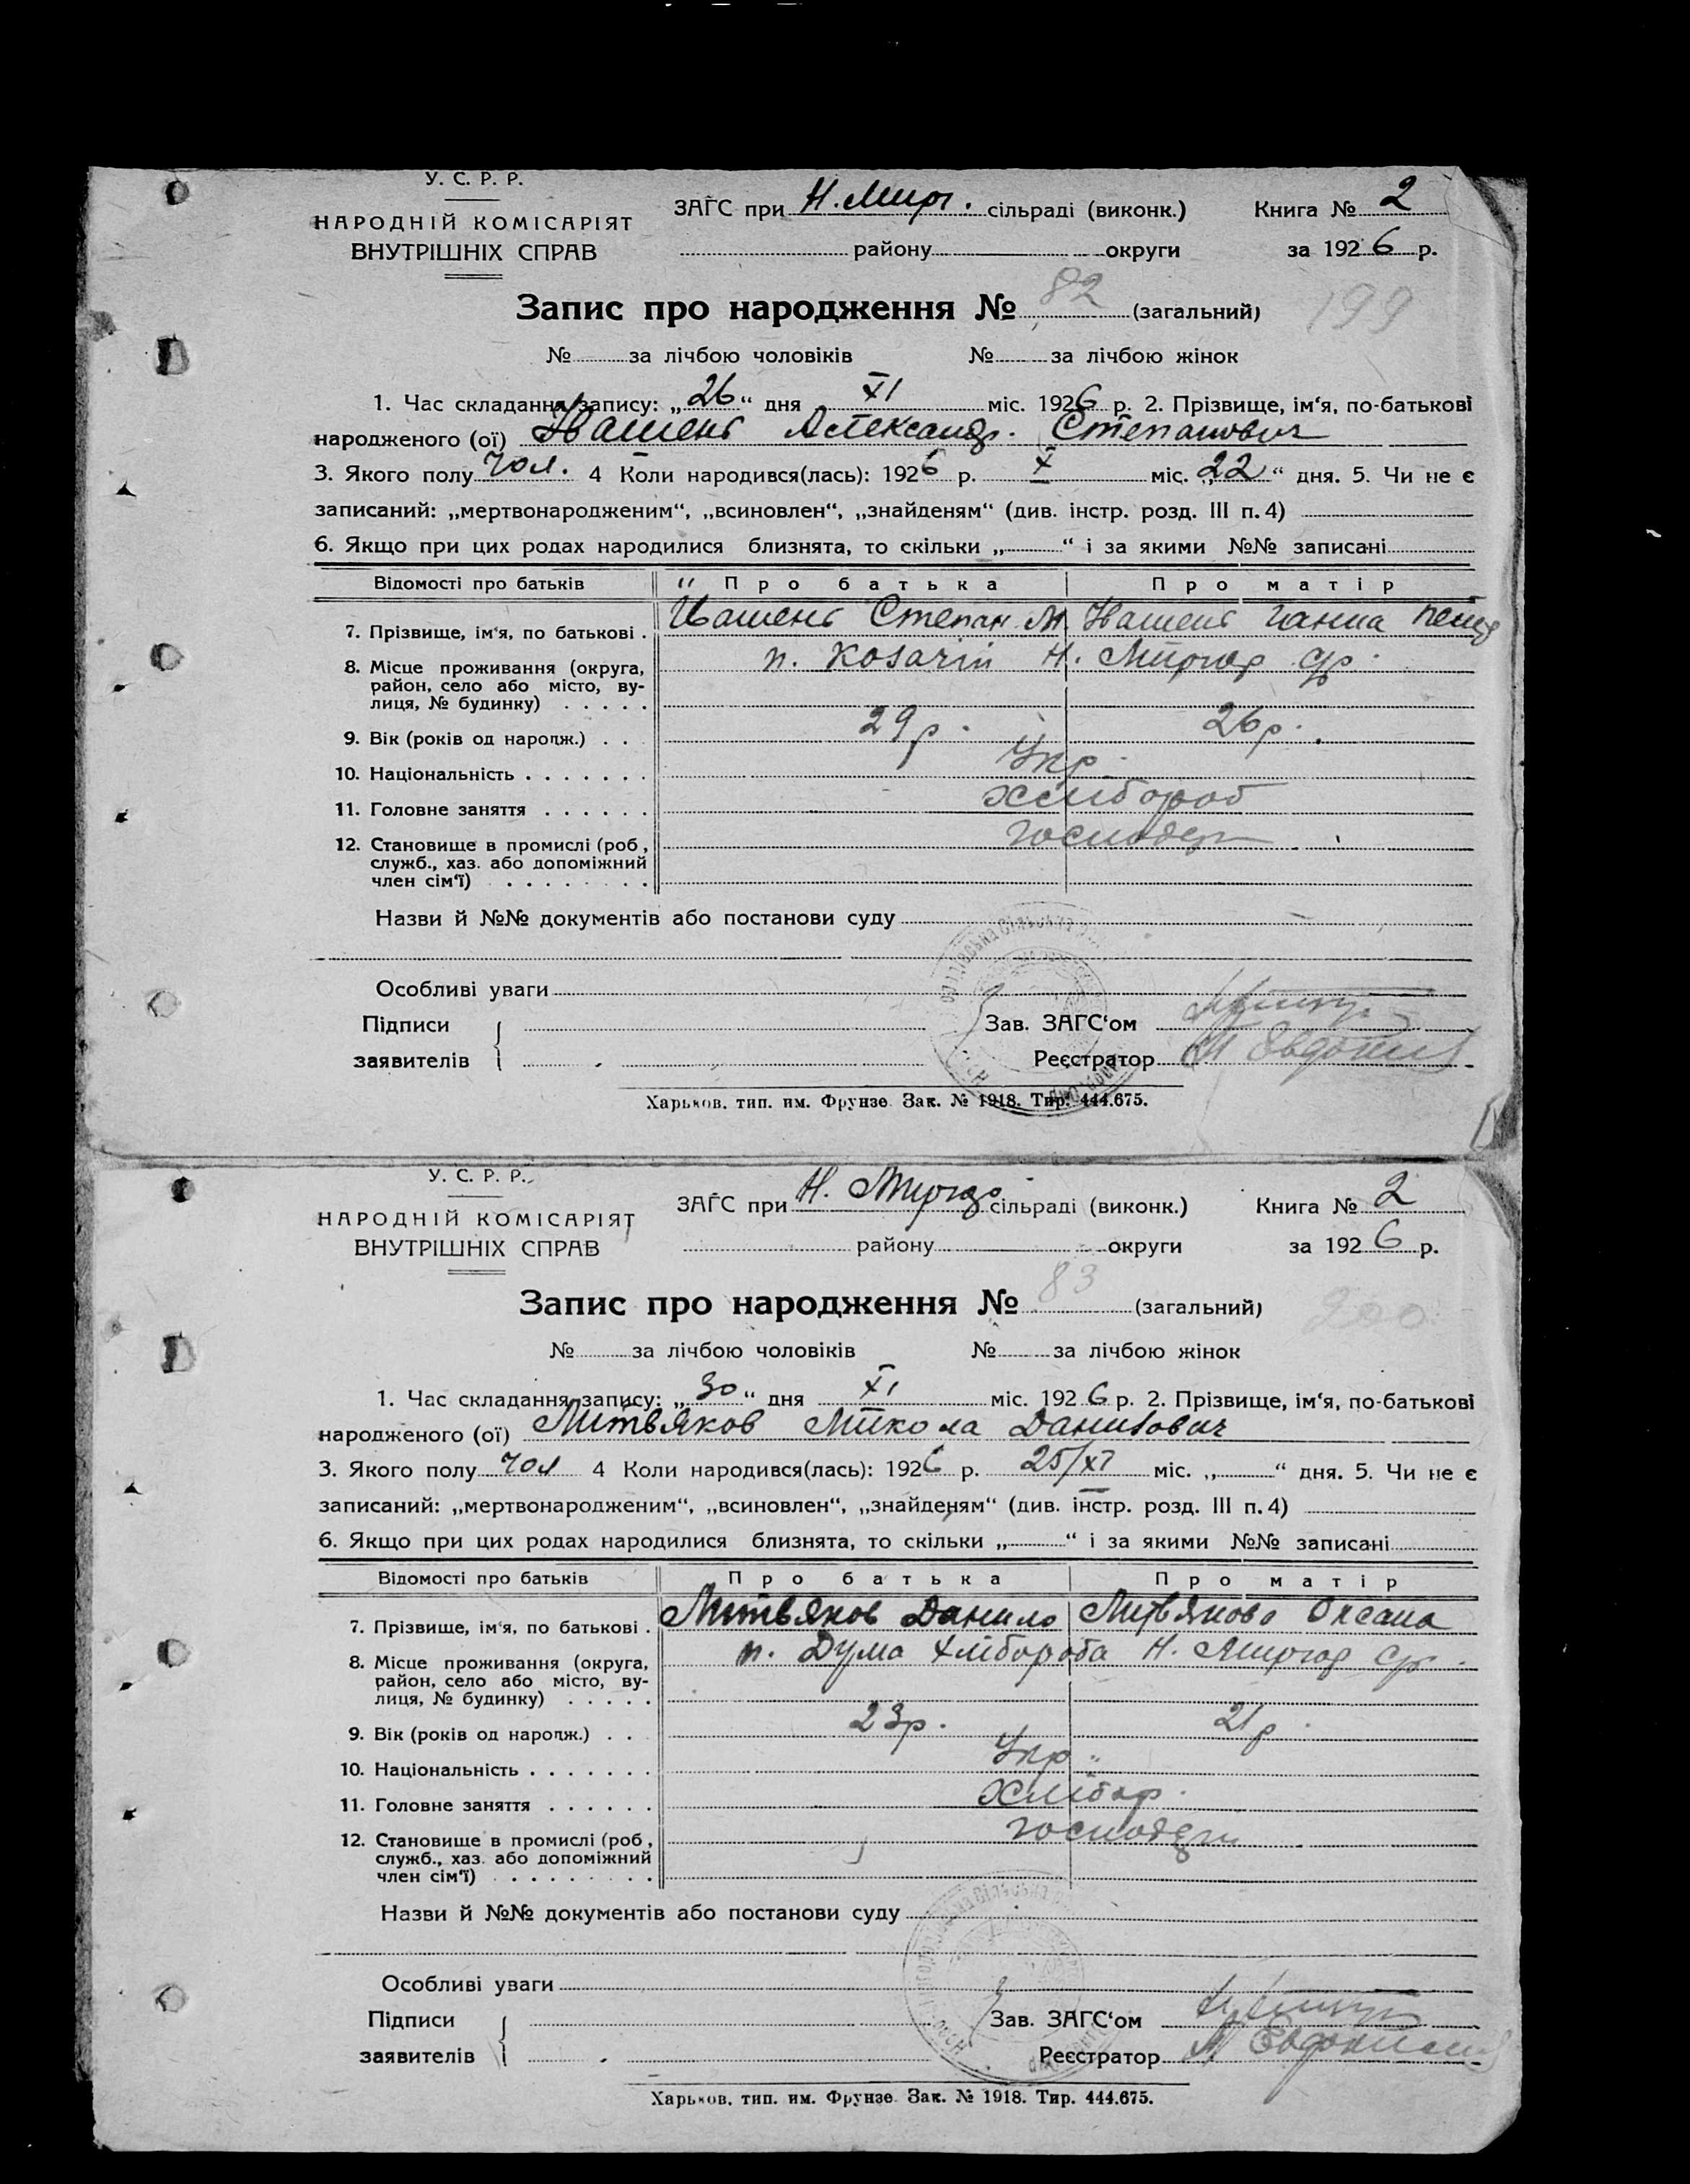 У. С. Р. Р.
НАРОДНІЙ КОМІСАРІЯТ
ВНУТРІШНІХ СПРАВ
ЗАҐС при Н. Мирг. сільраді (виконк.) Книга № 2
району округи за 1926 р.
Запис про народження № 82 (загальний) 199
№ за лічбою чоловіків № за лічбою жінок
1. Час складання запису: „26“ дня XI міс. 1926 р. 2. Прізвище, ім‘я, по-батькові
народженого (ої) Александр. Степанович
3. Якого полу чол. 4 Коли народився(лась): 1926 р. X міс. „22“ дня. 5. Чи не є
записаний: „мертвонародженим“, „всиновлен“, „знайденям“ (див. інстр. розд. III п. 4)
6. Якщо при цих родах народилися близнята, то скільки „ “ і за якими №№ записані
Відомості про батьків Про батька Про матір
7. Прізвище, ім‘я, по батькові . Степан М. Ганна
8. Місце проживання (округа, район, село або місто, вулиця, № будинку) . . . . . п. Н. Миргор ср.
9. Вік (років од народж.) . . . 29 р. 26 р.
10. Національність . . . . . . . Укр.
11. Головне заняття . . . . . . Хлібороб
12. Становище в промислі (роб., служб., хаз. або допоміжний член сім‘ї) . . . . . . . . господар
Назви й №№ документів або постанови суду
Особливі уваги
Підписи
заявителів
Зав. ЗАҐС‘ом
Реєстратор
Харьков. тип. им. Фрунзе. Зак. № 1918. Тир. 444.675.
У. С. Р. Р.
НАРОДНІЙ КОМІСАРІЯТ
ВНУТРІШНІХ СПРАВ
ЗАҐС при Н. Миргор сільраді (виконк.) Книга № 2
району округи за 1926 р.
Запис про народження № 83 (загальний) 200
№ за лічбою чоловіків № за лічбою жінок
1. Час складання запису: „30“ дня XI міс. 1926 р. 2. Прізвище, ім‘я, по-батькові
народженого (ої) Литвяков Микола Данилович
3. Якого полу чол 4 Коли народився(лась): 1926 р. 25/XI міс. „ “ дня. 5. Чи не є
записаний: „мертвонародженим“, „всиновлен“, „знайденям“ (див. інстр. розд. III п. 4)
6. Якщо при цих родах народилися близнята, то скільки „ “ і за якими №№ записані
Відомості про батьків Про батька Про матір
7. Прізвище, ім‘я, по батькові . Литвяков Данило Литвякова Оксана
8. Місце проживання (округа, район, село або місто, вулиця, № будинку) . . . . . п. Дума Хлібороба Н. Миргор ср.
9. Вік (років од народж.) . . . 23 р. 21 р.
10. Національність . . . . . . . Укр.
11. Головне заняття . . . . . . Хлібор.
12. Становище в промислі (роб., служб., хаз. або допоміжний член сім‘ї) . . . . . . . . господар
Назви й №№ документів або постанови суду
Особливі уваги
Підписи
заявителів
Зав. ЗАҐС‘ом
Реєстратор
Харьков. тип. им. Фрунзе. Зак. № 1918. Тир. 444.675.